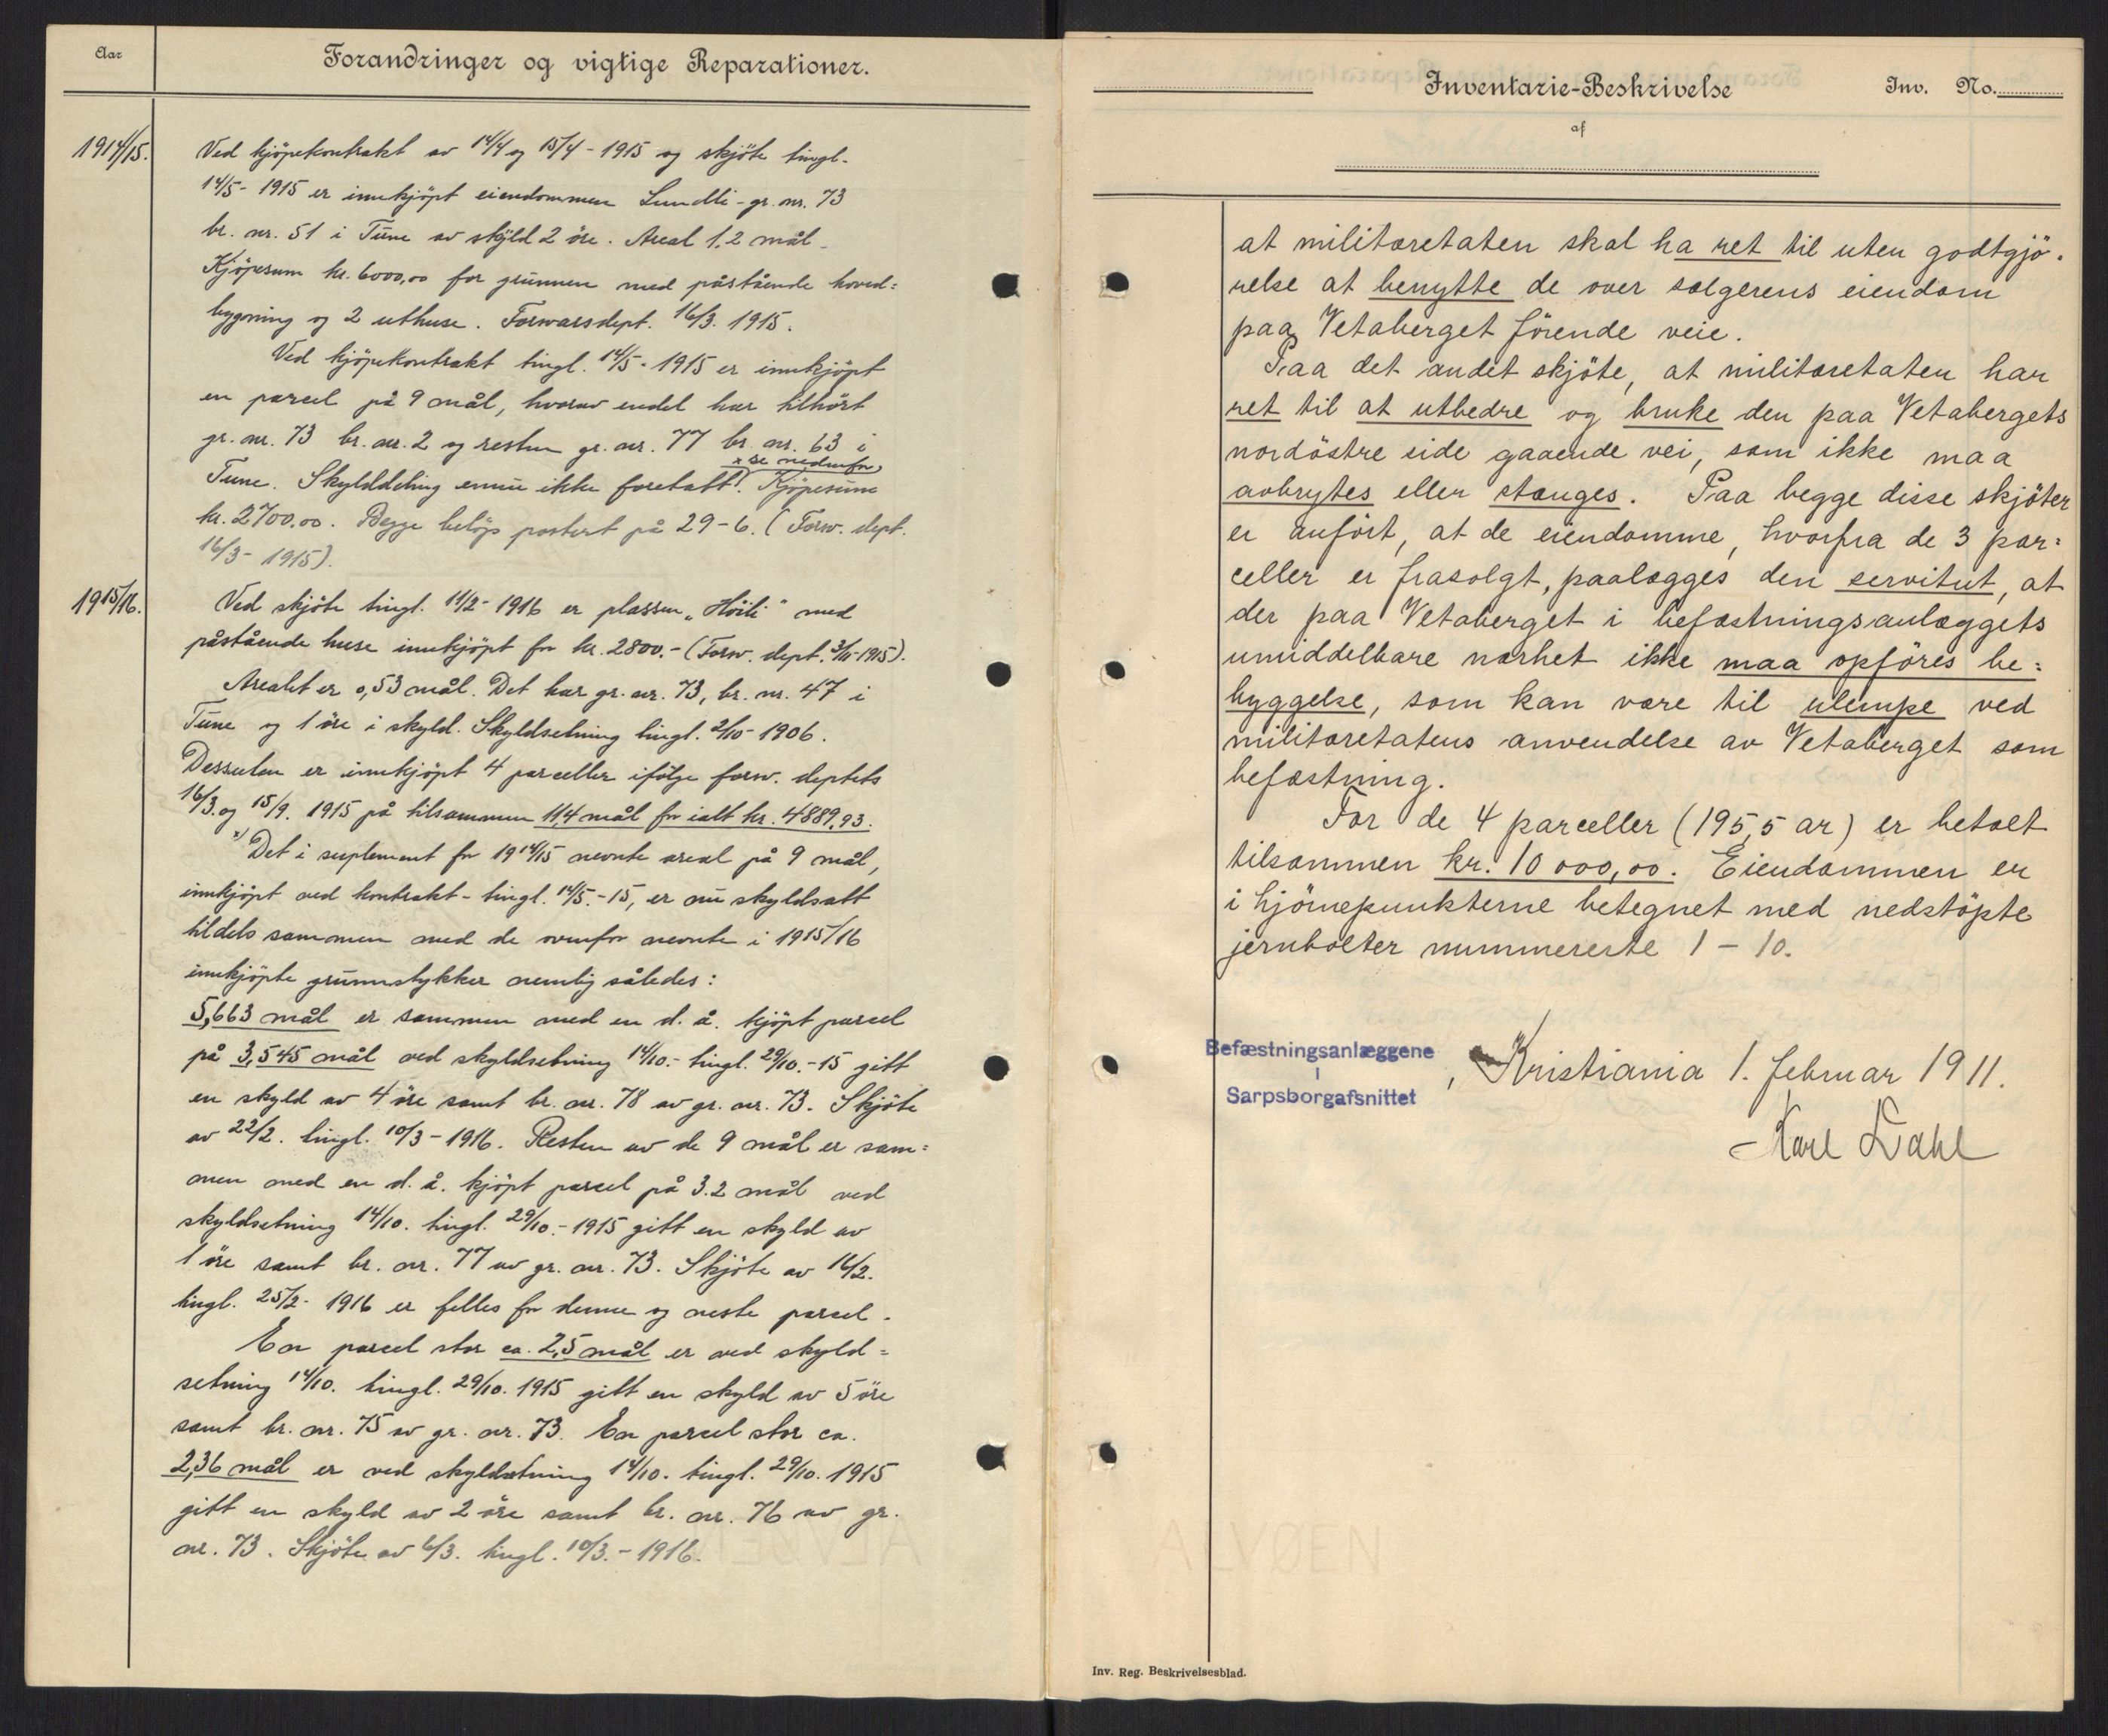 Aar
Forandringer og vigtige Reparationer.
1914/15.
Ved kjöpekontrakt av 14/4 og 15/4 - 1915 og skjöte tingl.
14/5 - 1915 er innkjöpt eiendommen Lundli - gr. nr. 73
br. nr. 51 i Tune av skyld 2 öre. Areal 1,2 mål.
Kjöpesum kr. 6000,00 for grunnen med påstående hoved=
bygning og 2 uthuse. Forsvarsdept. 16/3. 1915.
Ved kjöpekontrakt tingl. 14/5 - 1915 er innkjöpt
en parcel på 9 mål, hvorav endel har tilhört
gr. nr. 73 br. nr. 2 og resten gr. nr. 77 br. nr. 63 i
x se nedenfor
Tune. Skylddeling ennu ikke foretatt. Kjöpesum
kr. 2700.00. Begge belöp postert på 29-6. (Forsv. dept.
16/3 - 1915).
1915/16.
Ved skjöte tingl. 11/2 - 1916 er plassen „Höili" med
påstående huse innkjöpt for kr. 2800.- (Forsv. dept. 3/11-1915).
Arealet er 0,53 mål. Det har gr. nr. 73, br. nr. 47 i
Tune og 1 öre i skyld. Skyldsetning tingl. 2/10 - 1906.
Dessuten er innkjöpt 4 parceller ifölge forsv. deptets
16/3. og 15/9. 1915 på tilsammen 11,4 mål for ialt kr. 4889,93.
x) Det i suplement for 1914/15 nevnte areal på 9 mål,
innkjöpt ved kontrakt - tingl. 14/5. - 15, er nu skyldsatt
tildels sammen med de ovenfor nevnte i 1915/16
innkjöpte grunnstykker nemlig således:
5,663 mål er sammen med en d. å. kjöpt parcel
på 3,545 mål ved skyldsetning 14/10. - tingl. 29/10. - 15 gitt
en skyld av 4 öre samt br. nr. 78 av gr. nr. 73. Skjöte
av 22/2. tingl. 10/3 - 1916. Resten av de 9 mål er sam=
men med en d. å. kjöpt parcel på 3.2 mål ved
skyldsetning 14/10. tingl. 29/10. - 1915 gitt en skyld av
1 öre samt br. nr. 77 av gr. nr. 73. Skjöte av 16/2.
tingl. 25/2 - 1916 er felles for denne og neste parcel.
En parcel stor ca. 2,5 mål er ved skyld=
setning 14/10. tingl. 29/10. 1915 gitt en skyld av 5 öre
samt br. nr. 75 av gr. nr. 73. En parcel stor ca.
2,36 mål er ved skyldsetning 14/10. tingl. 29/10. 1915
gitt en skyld av 2 öre samt br. nr. 76 av gr.
nr. 73. Skjöte av 6/3. tingl. 10/3. - 1916.
Inventarie-Beskrivelse
Inv. No.
af
at militæretaten skal ha ret til uten godtgjö=
relse at benytte de over sælgerens eiendom
paa Vetaberget förende veie.
Paa det andet skjöte, at militæretaten har
ret til at utbedre og bruke den paa Vetabergets
nordöstre side gaaende vei, som ikke maa
avbrytes eller stænges. Paa begge disse skjöter
er anfört, at de eiendomme, hvorfra de 3 par=
celler er frasolgt, paalægges den servitut, at
der paa Vetaberget i befæstningsanlæggets
umiddelbare nærhet ikke maa opföres be=
byggelse, som kan være til ulempe ved
militæretatens anvendelse av Vetaberget som
befæstning.
For de 4 parceller (195,5 ar) er betalt
tilsammen kr. 10 000,00. Eiendommen er
i hjörnepunkterne betegnet med nedstöpte
jernbolter nummererte 1 - 10.
Befæstningsanlæggene
i
Sarpsborgafsnittet
, Kristiania 1. februar 1911.
Karl Dahl
Inv. Reg. Beskrivelsesblad.